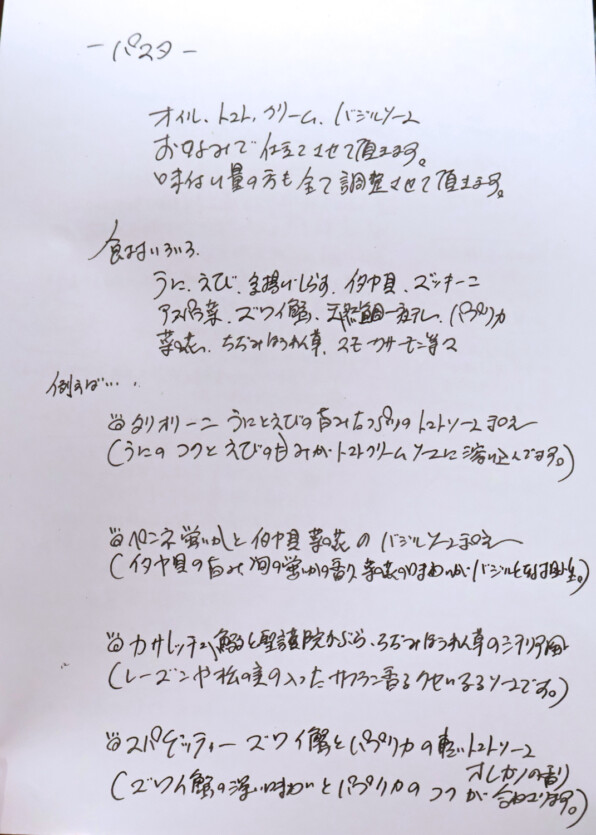 ーパスター
オイル、トマト、クリーム、バジルソース
お好みで仕立てさせて頂きます。
味付け量の方も全て調整させて頂きます。
食材いろいろ、
うに、えび、釜揚げしらす、イタヤ貝、ズッキーニ
アスパラ菜、ズワイ蟹、天然鯛、パプリカ
菜の花、ちぢみほうれん草、スモークサーモン等々
例えば…、
タリオリーニ うにとえびの旨みたっぷりのトマトソース和え
(うにのコクとえびの旨みがトマトクリームソースに溶け込んでます。)
ペンネ 蛍いかとイタヤ貝 菜の花のバジルソース和え
(イタヤ貝の旨み 旬の蛍いかの香り 菜の花のほろにがさがバジルと相性。)
カサレッチェ と聖護院かぶら、ちぢみほうれん草のシチリア風
(レーズンや松の実の入ったサフラン香るクセになるソースです。)
スパゲッティー ズワイ蟹とパプリカの軽いトマトソース
オレガノの香り
(ズワイ蟹の深い味わいとパプリカのコクが合わさります。)